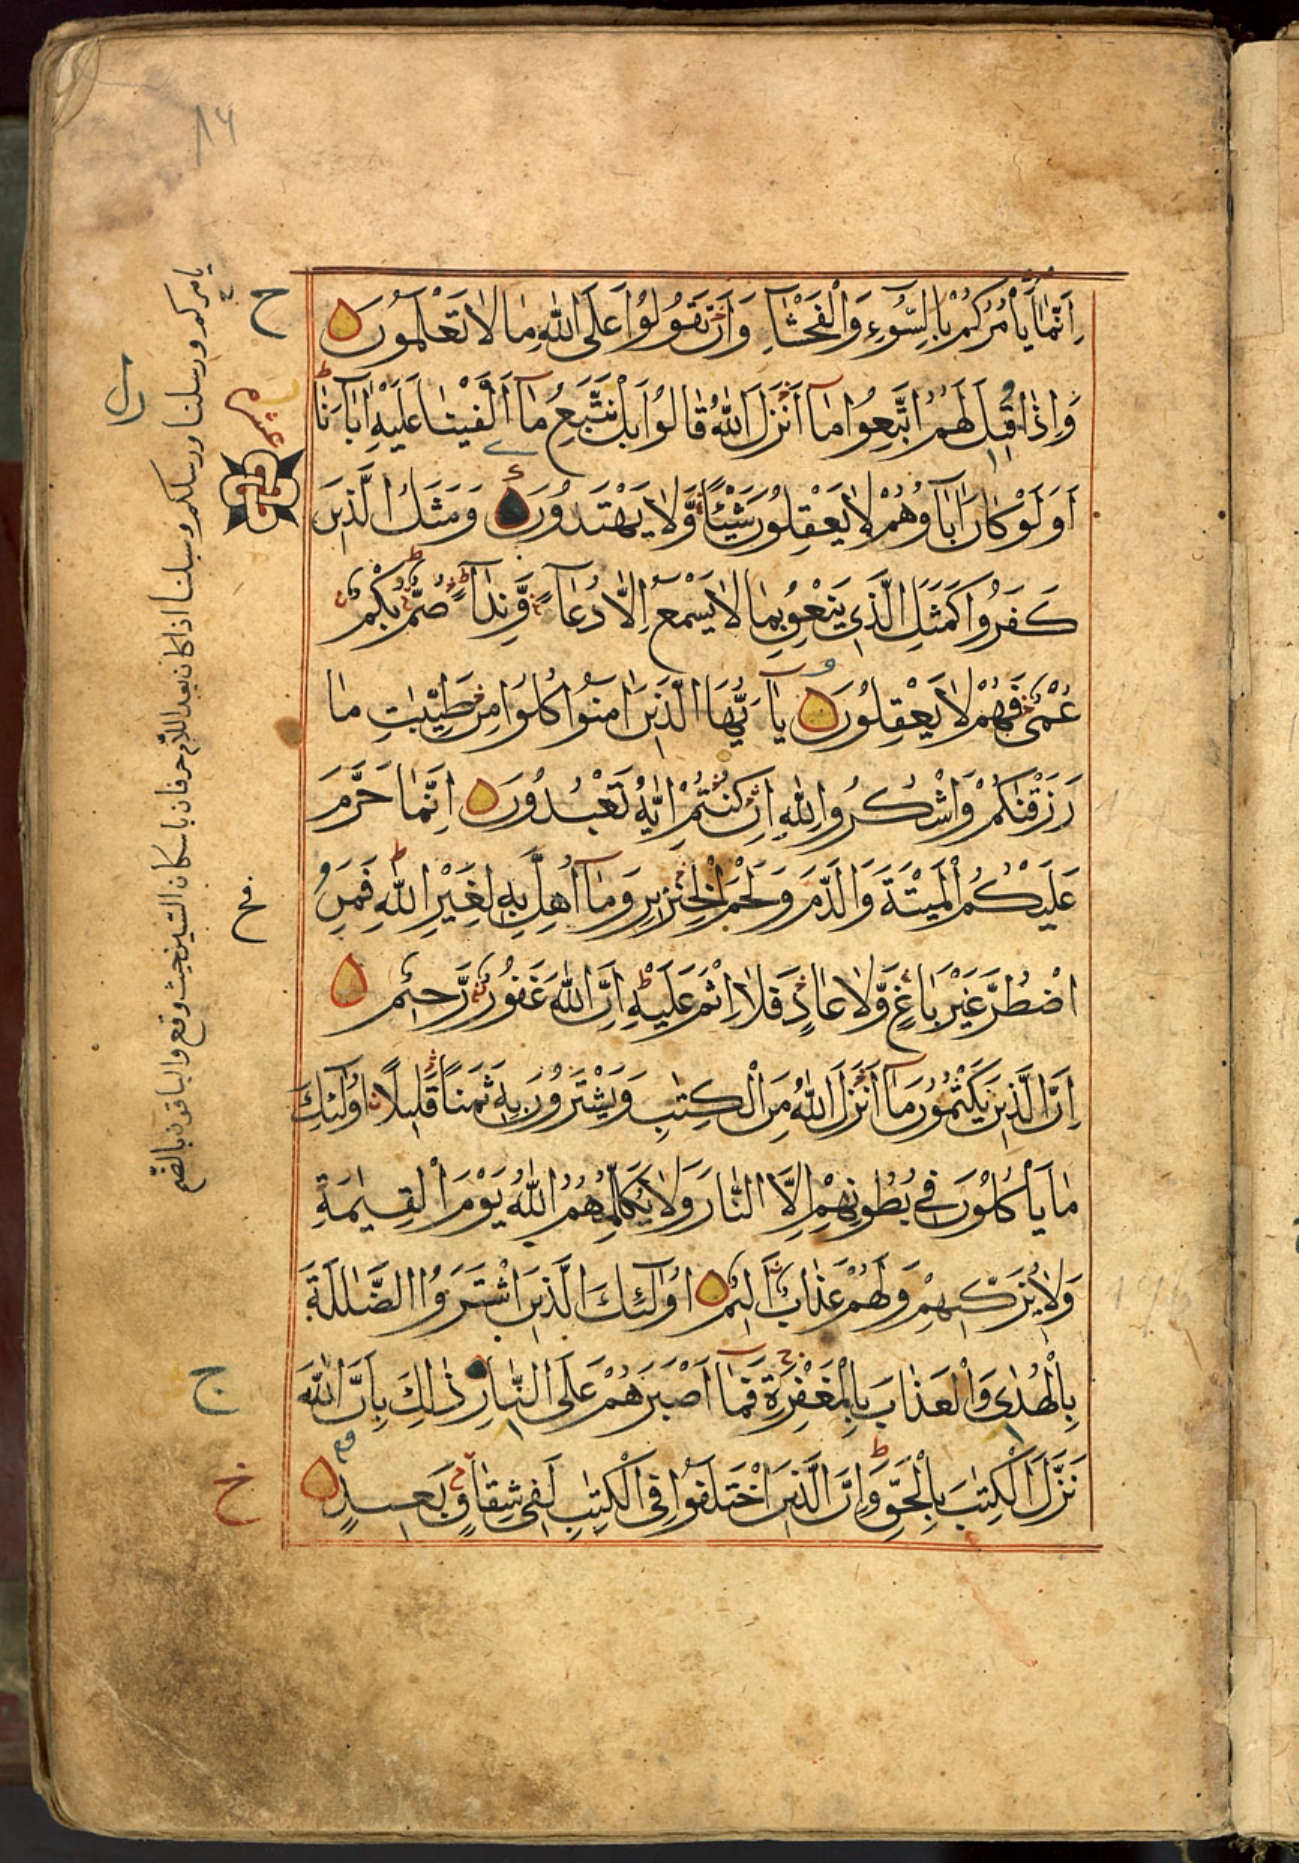 ١٤
اِنَّمَا يَأْمُرُكُمْ بِالسُّوءِ وَالْفَحْشَاءِ وَاَنْ تَقُولُوا عَلَى اللّٰهِ مَا لَا تَعْلَمُونَ
وَاِذَا قِيلَ لَهُمُ اتَّبِعُوا مَا اَنْزَلَ اللّٰهُ قَالُوا بَلْ نَتَّبِعُ مَا اَلْفَيْنَا عَلَيْهِ اٰبَاءَنَا
اَوَلَوْ كَانَ اٰبَاؤُهُمْ لَا يَعْقِلُونَ شَيْئًا وَّلَا يَهْتَدُونَ وَمَثَلُ الَّذِينَ
كَفَرُوا كَمَثَلِ الَّذِي يَنْعِقُ بِمَا لَا يَسْمَعُ اِلَّا دُعَاءً وَّنِدَاءً صُمٌّ بُكْمٌ
عُمْيٌ فَهُمْ لَا يَعْقِلُونَ يَا اَيُّهَا الَّذِينَ اٰمَنُوا كُلُوا مِنْ طَيِّبٰتِ مَا
رَزَقْنٰكُمْ وَاشْكُرُوا لِلّٰهِ اِنْ كُنْتُمْ اِيَّاهُ تَعْبُدُونَ اِنَّمَا حَرَّمَ
عَلَيْكُمُ الْمَيْتَةَ وَالدَّمَ وَلَحْمَ الْخِنْزِيرِ وَمَا اُهِلَّ بِهٖ لِغَيْرِ اللّٰهِ فَمَنِ
اضْطُرَّ غَيْرَ بَاغٍ وَّلَا عَادٍ فَلَا اِثْمَ عَلَيْهِ اِنَّ اللّٰهَ غَفُورٌ رَّحِيمٌ
اِنَّ الَّذِينَ يَكْتُمُونَ مَا اَنْزَلَ اللّٰهُ مِنَ الْكِتٰبِ وَيَشْتَرُونَ بِهٖ ثَمَنًا قَلِيلًا اُولٰئِكَ
مَا يَأْكُلُونَ فِي بُطُونِهِمْ اِلَّا النَّارَ وَلَا يُكَلِّمُهُمُ اللّٰهُ يَوْمَ الْقِيٰمَةِ
وَلَا يُزَكِّيهِمْ وَلَهُمْ عَذَابٌ اَلِيمٌ اُولٰئِكَ الَّذِينَ اشْتَرَوُا الضَّلٰلَةَ
بِالْهُدٰى وَالْعَذَابَ بِالْمَغْفِرَةِ فَمَا اَصْبَرَهُمْ عَلَى النَّارِ ذٰلِكَ بِاَنَّ اللّٰهَ
نَزَّلَ الْكِتٰبَ بِالْحَقِّ وَاِنَّ الَّذِينَ اخْتَلَفُوا فِي الْكِتٰبِ لَفِي شِقَاقٍ بَعِيدٍ
يامركم ورسلنا ورسلكم وسبلنا اذا كان بعد اللام حرفان باسكان السين حيث وقع والباقون بالضم